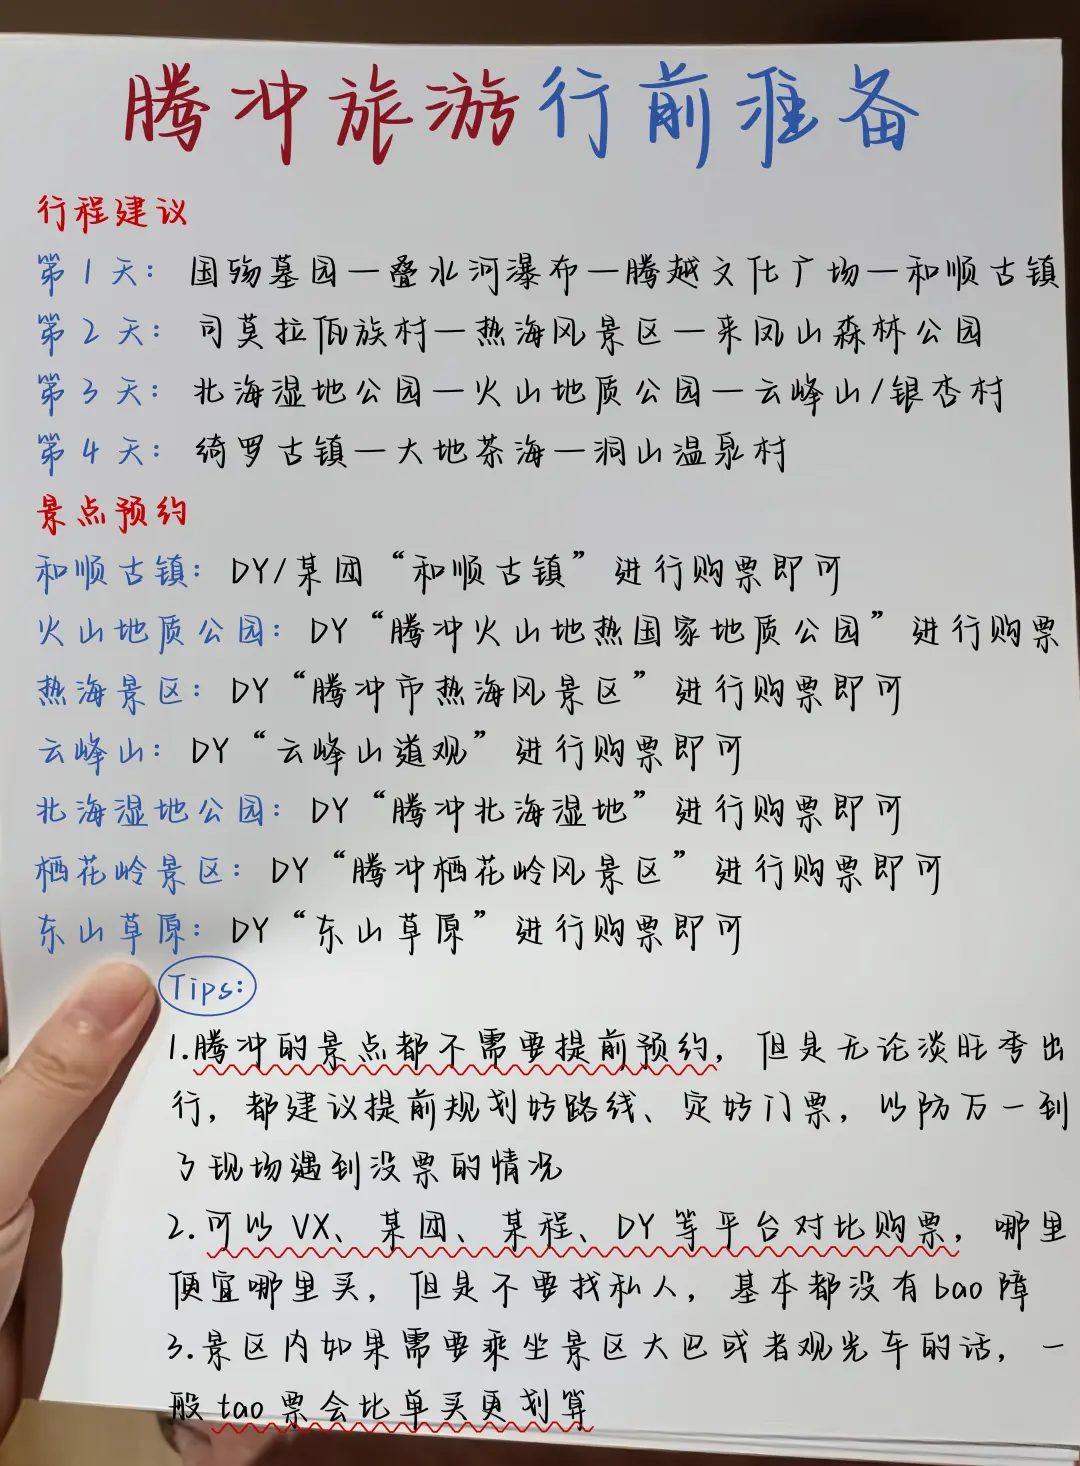 腾冲旅游行前准备
行程建议
第1天：国殇墓园—叠水河瀑布—腾越文化广场—和顺古镇
第2天：司莫拉佤族村—热海风景区—来凤山森林公园
第3天：北海湿地公园—火山地质公园—云峰山/银杏村
第4天：绮罗古镇—大地茶海—洞山温泉村
景点预约
和顺古镇：DY/某团“和顺古镇”进行购票即可
火山地质公园：DY“腾冲火山地热国家地质公园”进行购票
热海景区：DY“腾冲市热海风景区”进行购票即可
云峰山：DY“云峰山道观”进行购票即可
北海湿地公园：DY“腾冲北海湿地”进行购票即可
栖花岭景区：DY“腾冲栖花岭风景区”进行购票即可
东山草原：DY“东山草原”进行购票即可
Tips：
1.腾冲的景点都不需要提前预约，但是无论淡旺季出
行，都建议提前规划好路线、定好门票，以防万一到
了现场遇到没票的情况
2.可以VX、某团、某程、DY等平台对比购票，哪里
便宜哪里买，但是不要找私人，基本都没有bao障
3.景区内如果需要乘坐景区大巴或者观光车的话，一
般tao票会比单买更划算